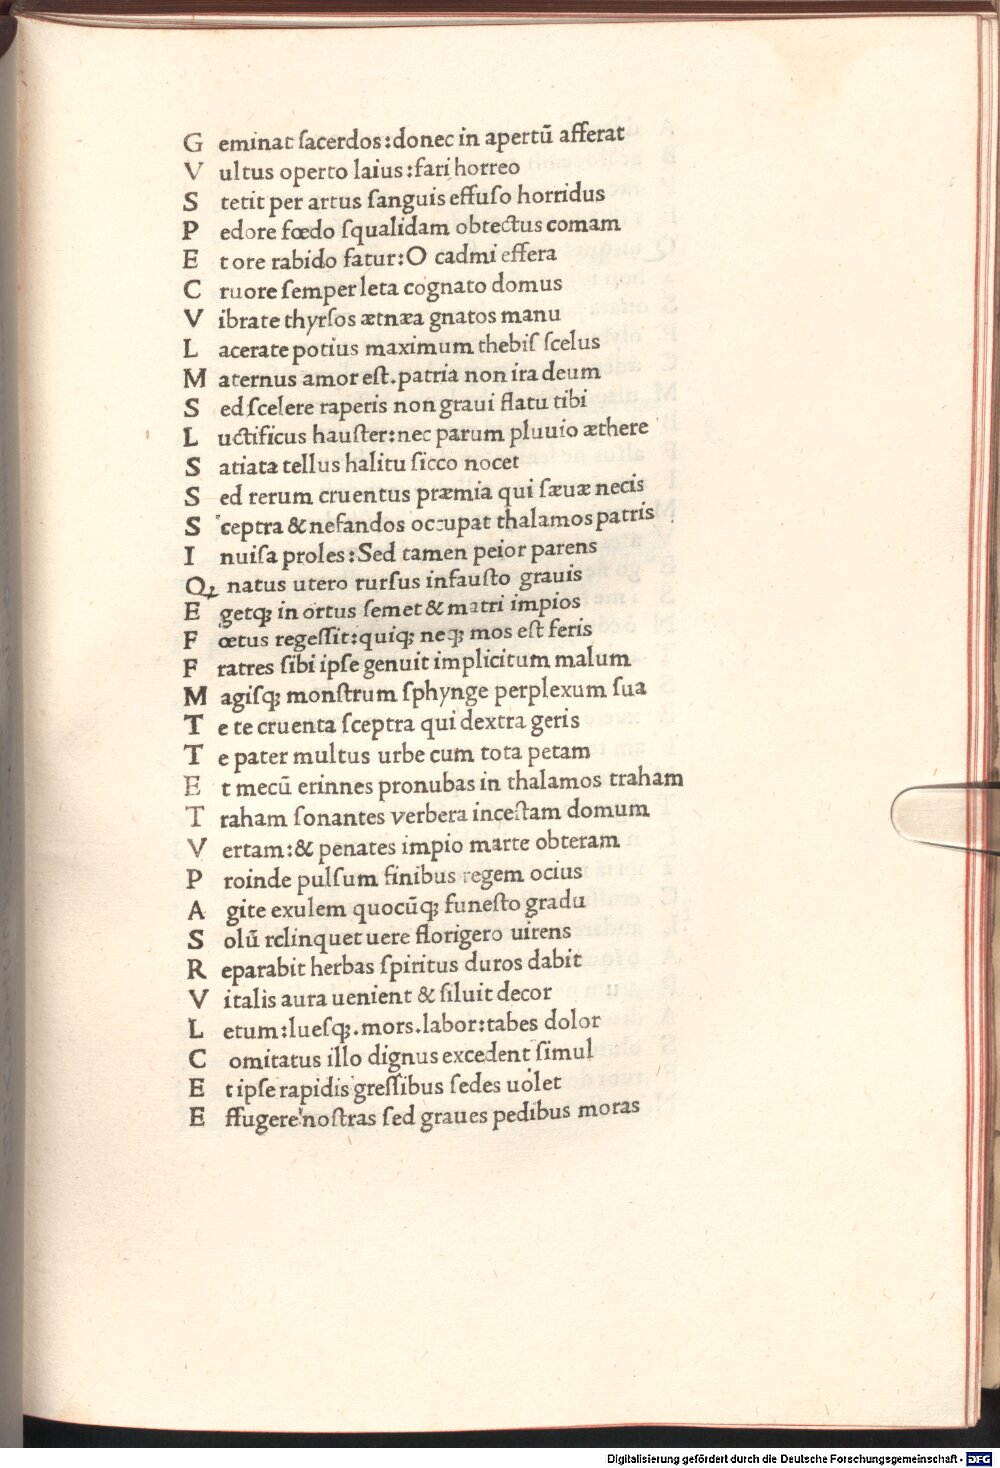 G eminat ſacerdos:donec in apertū afferat
V ultus operto laius:fari horreo
S tetit per artus ſanguis effuſo horridus
P edore fœdo ſqualidam obtectus comam
E t ore rabido fatur:O cadmi effera
C ruore ſemper leta cognato domus
V ibrate thyrſos ætnæa gnatos manu
L acerate potius maximum thebiſ ſcelus
M aternus amor eſt.patria non ira deum
S ed ſcelere raperis non graui flatu tibi
L uctificus hauſter:nec parum pluuio æthere
S atiata tellus halitu ſicco nocet
S ed rerum cruentus præmia qui ſæuæ necis
S ceptra & nefandos occupat thalamos patris
I nuiſa proles:Sed tamen peior parens
Qꝫ natus utero rurſus infauſto grauis
E getqꝫ in ortus ſemet & matri impios
F œtus regeſſit:quiqꝫ neqꝫ mos eſt feris
F ratres ſibi ipſe genuit implicitum malum
M agiſqꝫ monſtrum ſphynge perplexum ſua
T e te cruenta ſceptra qui dextra geris
T e pater multus urbe cum tota petam
E t mecū erinnes pronubas in thalamos traham
T raham ſonantes verbera inceſtam domum
V ertam:& penates impio marte obteram
P roinde pulſum finibus regem ocius
A gite exulem quocūqꝫ funeſto gradu
S olū rclinquet uere florigero uirens
R eparabit herbas ſpiritus duros dabit
V italis aura uenient & ſiluit decor
L etum:lueſqꝫ.mors.labor:tabes dolor
C omitatus illo dignus excedent ſimul
E t ipſe rapidis greſſibus ſedes uolet
E ffugere noſtras ſed graues pedibus moras
Digitalisierung gefördert durch die Deutsche Forschungsgemeinschaft - DFG